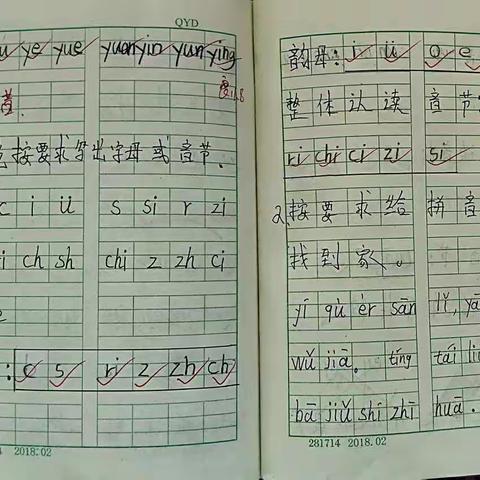 QYD
u ye yue yuan yin yun ying
按要求写出字母或音节.
c i ü s si r zi
i ch sh chi z zh ci
e
: c s ri z zh ch
2018.02
韵母: i ü o e
整体认读音节
ri chi ci zi si
2.按要求给拼音
找到家。
yī qù èr sān lǐ, yā
wǔ jiā。 tíng tái li
bā jiǔ shí zhī huā.
281714 2018.02